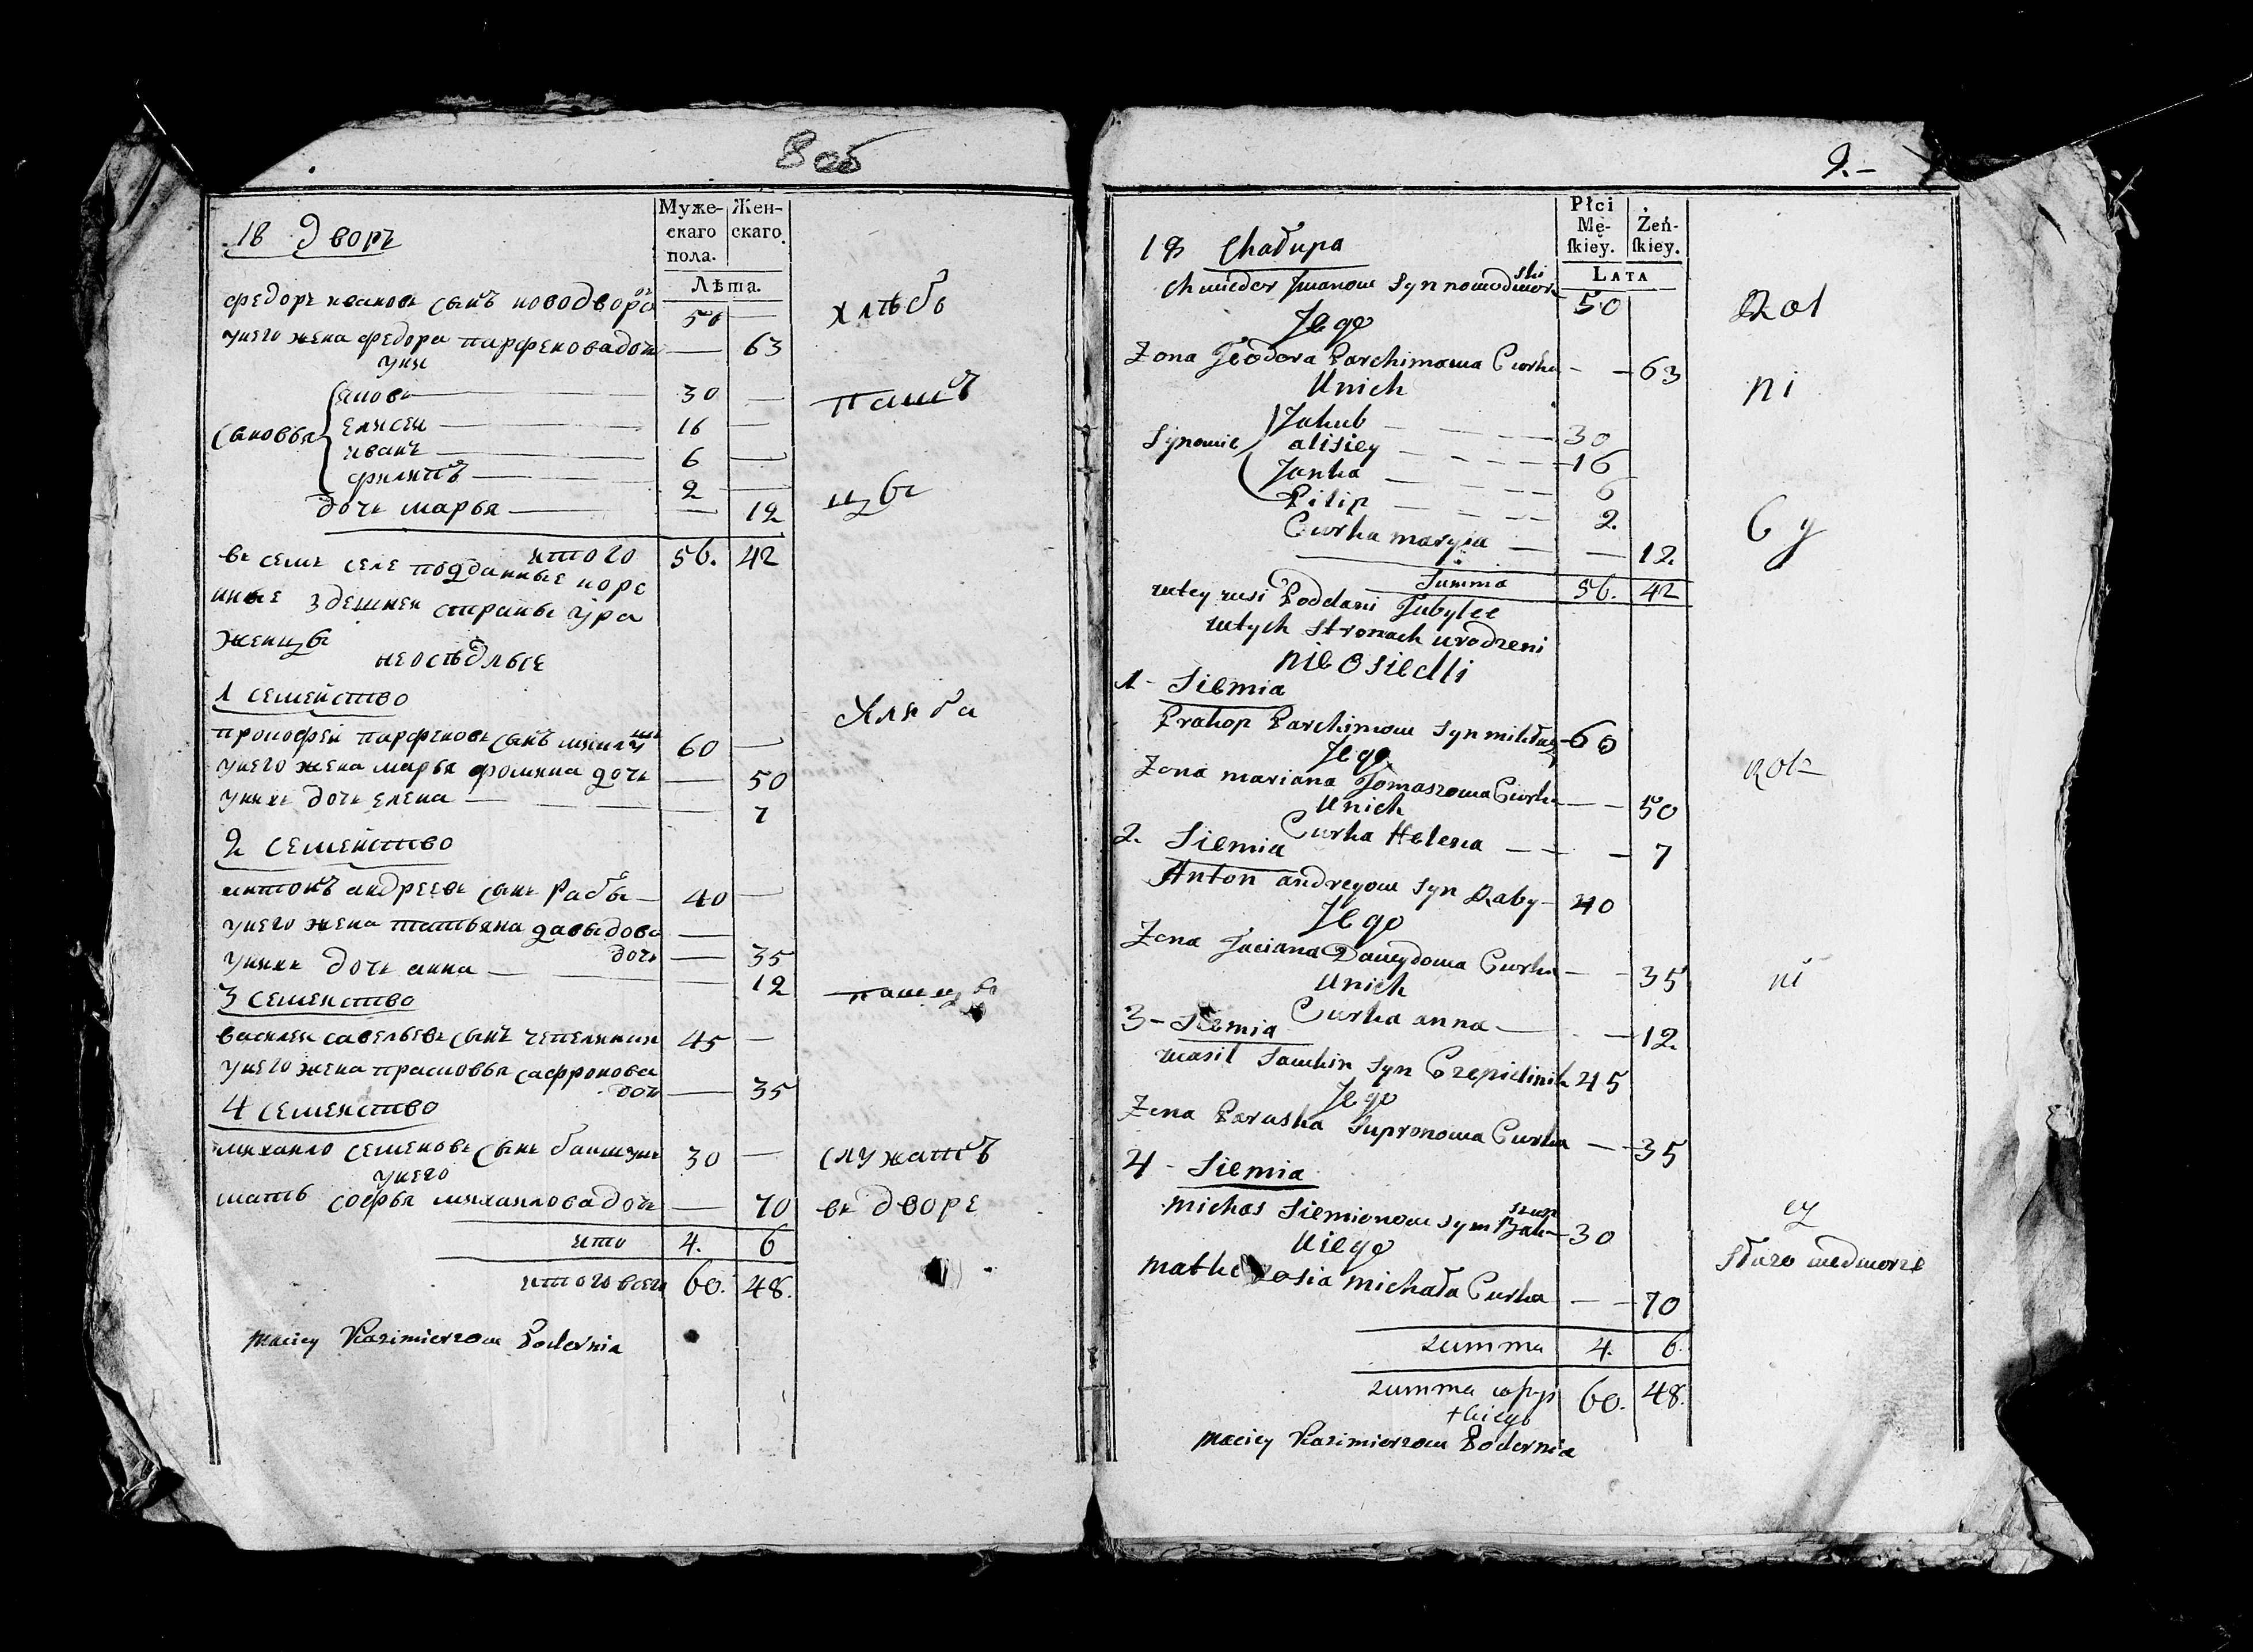 8 об
18 Дворъ
Муже-
скаго
пола.
Жен-
скаго.
Лѣта.
федоръ ивановъ сынъ новодворс
50
хлѣбъ
унего жена федора парфеновадочь
63
уних
яковъ
30
пашỗ
сыновья
елисеи
16
иванъ
6
филипъ
2
цы
дочь марья
12
итого
56. 42
въ семъ селе подданные коре
нные здешнеи страны ура
женцы
неоседлые
1 семейство
хлеба
прокофеи парфеновъ сынъ
60
унего жена марья фомина дочь
50
уних дочь елена
7
2 семейство
антонъ андреевъ сынъ рабы
40
унего жена татьяна давыдова
дочь
35
уних дочь анна
12
пашцы
3 семенство
василеи савельевъ сынъ чепелинин
45
унего жена прасковья сафронова
дочь
35
4 семенство
михаило семеновъ сынъ
30
служатъ
унего
мать софья михаиловадочь
70
въ дворе
ито
4. 6
итого всего
60. 48.
Maciey Kazimierzow Podernia
9.-
18 Chałupa
Płci
Mę-
ſkiey.
Żeń-
ſkiey.
LATA
Chwiedor Jwanow Syn nowodwor
ski
50
Rol
Jego
Zona Teodora Parchimowa Curka
63
Unich
ni
Jakub
30
Synowie
alisiey
16
Janka
6
Pilip
2.
Curka maryia
12.
cy
Summa
56. 42
wtey wsi Poddani Tubylce
wtych Stronach urodzeni
nieosiedli
1 - Siemia
Prakop Parchimow Syn
60
Jego
rol
Zona mariana Tomaszowa Curka
50
Unich
Curka Helena
7
2. Siemia
Anton andreyow Syn Raby
40
Jego
Zona Taciana Dawydowa Curka
35
ni
Unich
Curka anna
12.
3 - Siemia
wasil Sawkin Syn Czepielinik
45
Jego
Zona Paraska Supronowa Curka
35
4 - Siemia
michas Siemionow Syn
30
cy
Uiego
Służo wedworze
matka Zosia Michała Curka
70
summa
4. 6.
summa
60. 48.
Maciey Kazimierzow Podernia